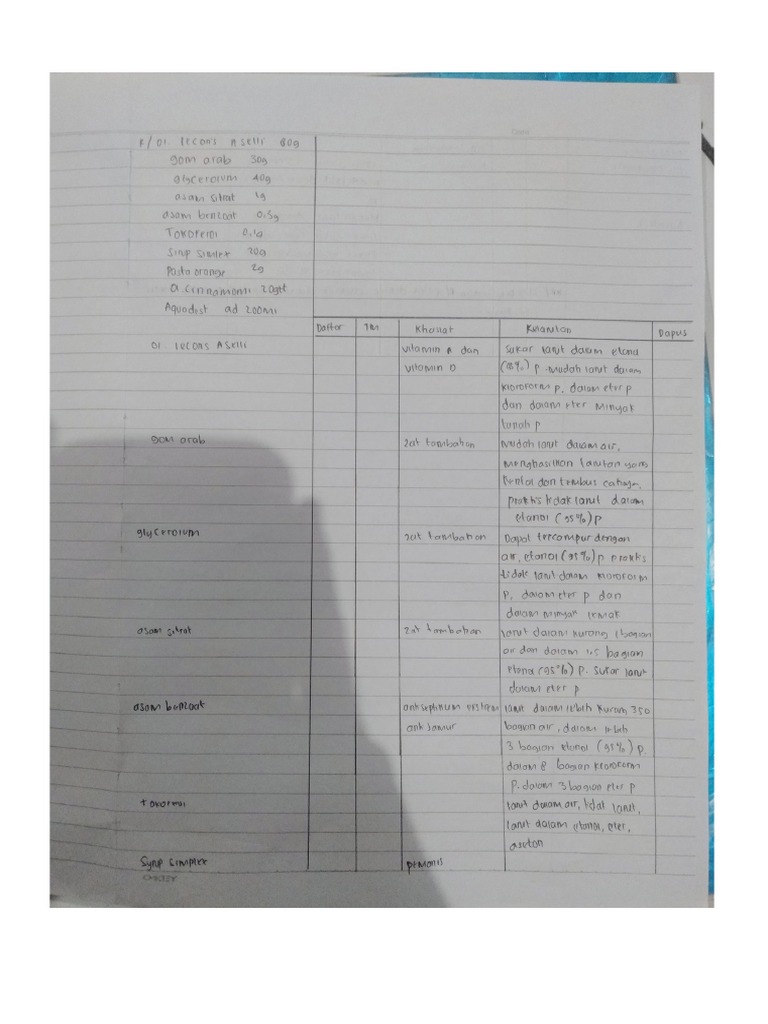 R/ Ol. Iecoris Aselli 80g
gom arab 30g
glycerolum 40g
asam sitrat 1g
asam benzoat 0,5g
Tokoferol 0,1g
Sirup Simplex 20g
Pasta orange 2g
a. cinnamomi 20gtt
Aquadest ad 200ml
Daftar TM Khasiat Kelarutan Dapus
Ol. Iecoris Aselli vitamin A dan Sukar larut dalam etanol
vitamin D p. mudah larut dalam
kloroform p, dalam eter p
dan dalam eter Minyak
tanah p
gom arab zat tambahan Mudah larut dalam air,
menghasilkan larutan yang
kental dan tembus cahaya,
praktis tidak larut dalam
etanol (95%) p
glycerolum zat tambahan Dapat tercampur dengan
air, etanol (95%) p praktis
tidak larut dalam kloroform
P, dalam eter p dan
dalam minyak lemak
asam sitrat zat tambahan larut dalam kurang 1 bagian
air dan dalam 1,5 bagian
etanol (95%) P. Sukar larut
dalam eter p
asam benzoat antiseptikum larut dalam lebih kurang 350
anti jamur bagian air, dalam lebih
3 bagian etanol (95%) p.
dalam 8 bagian kloroform
P. dalam 3 bagian eter p
tokoferol larut dalam air, tidak larut,
larut dalam etanol, eter,
aseton
Syrup simplex pemanis